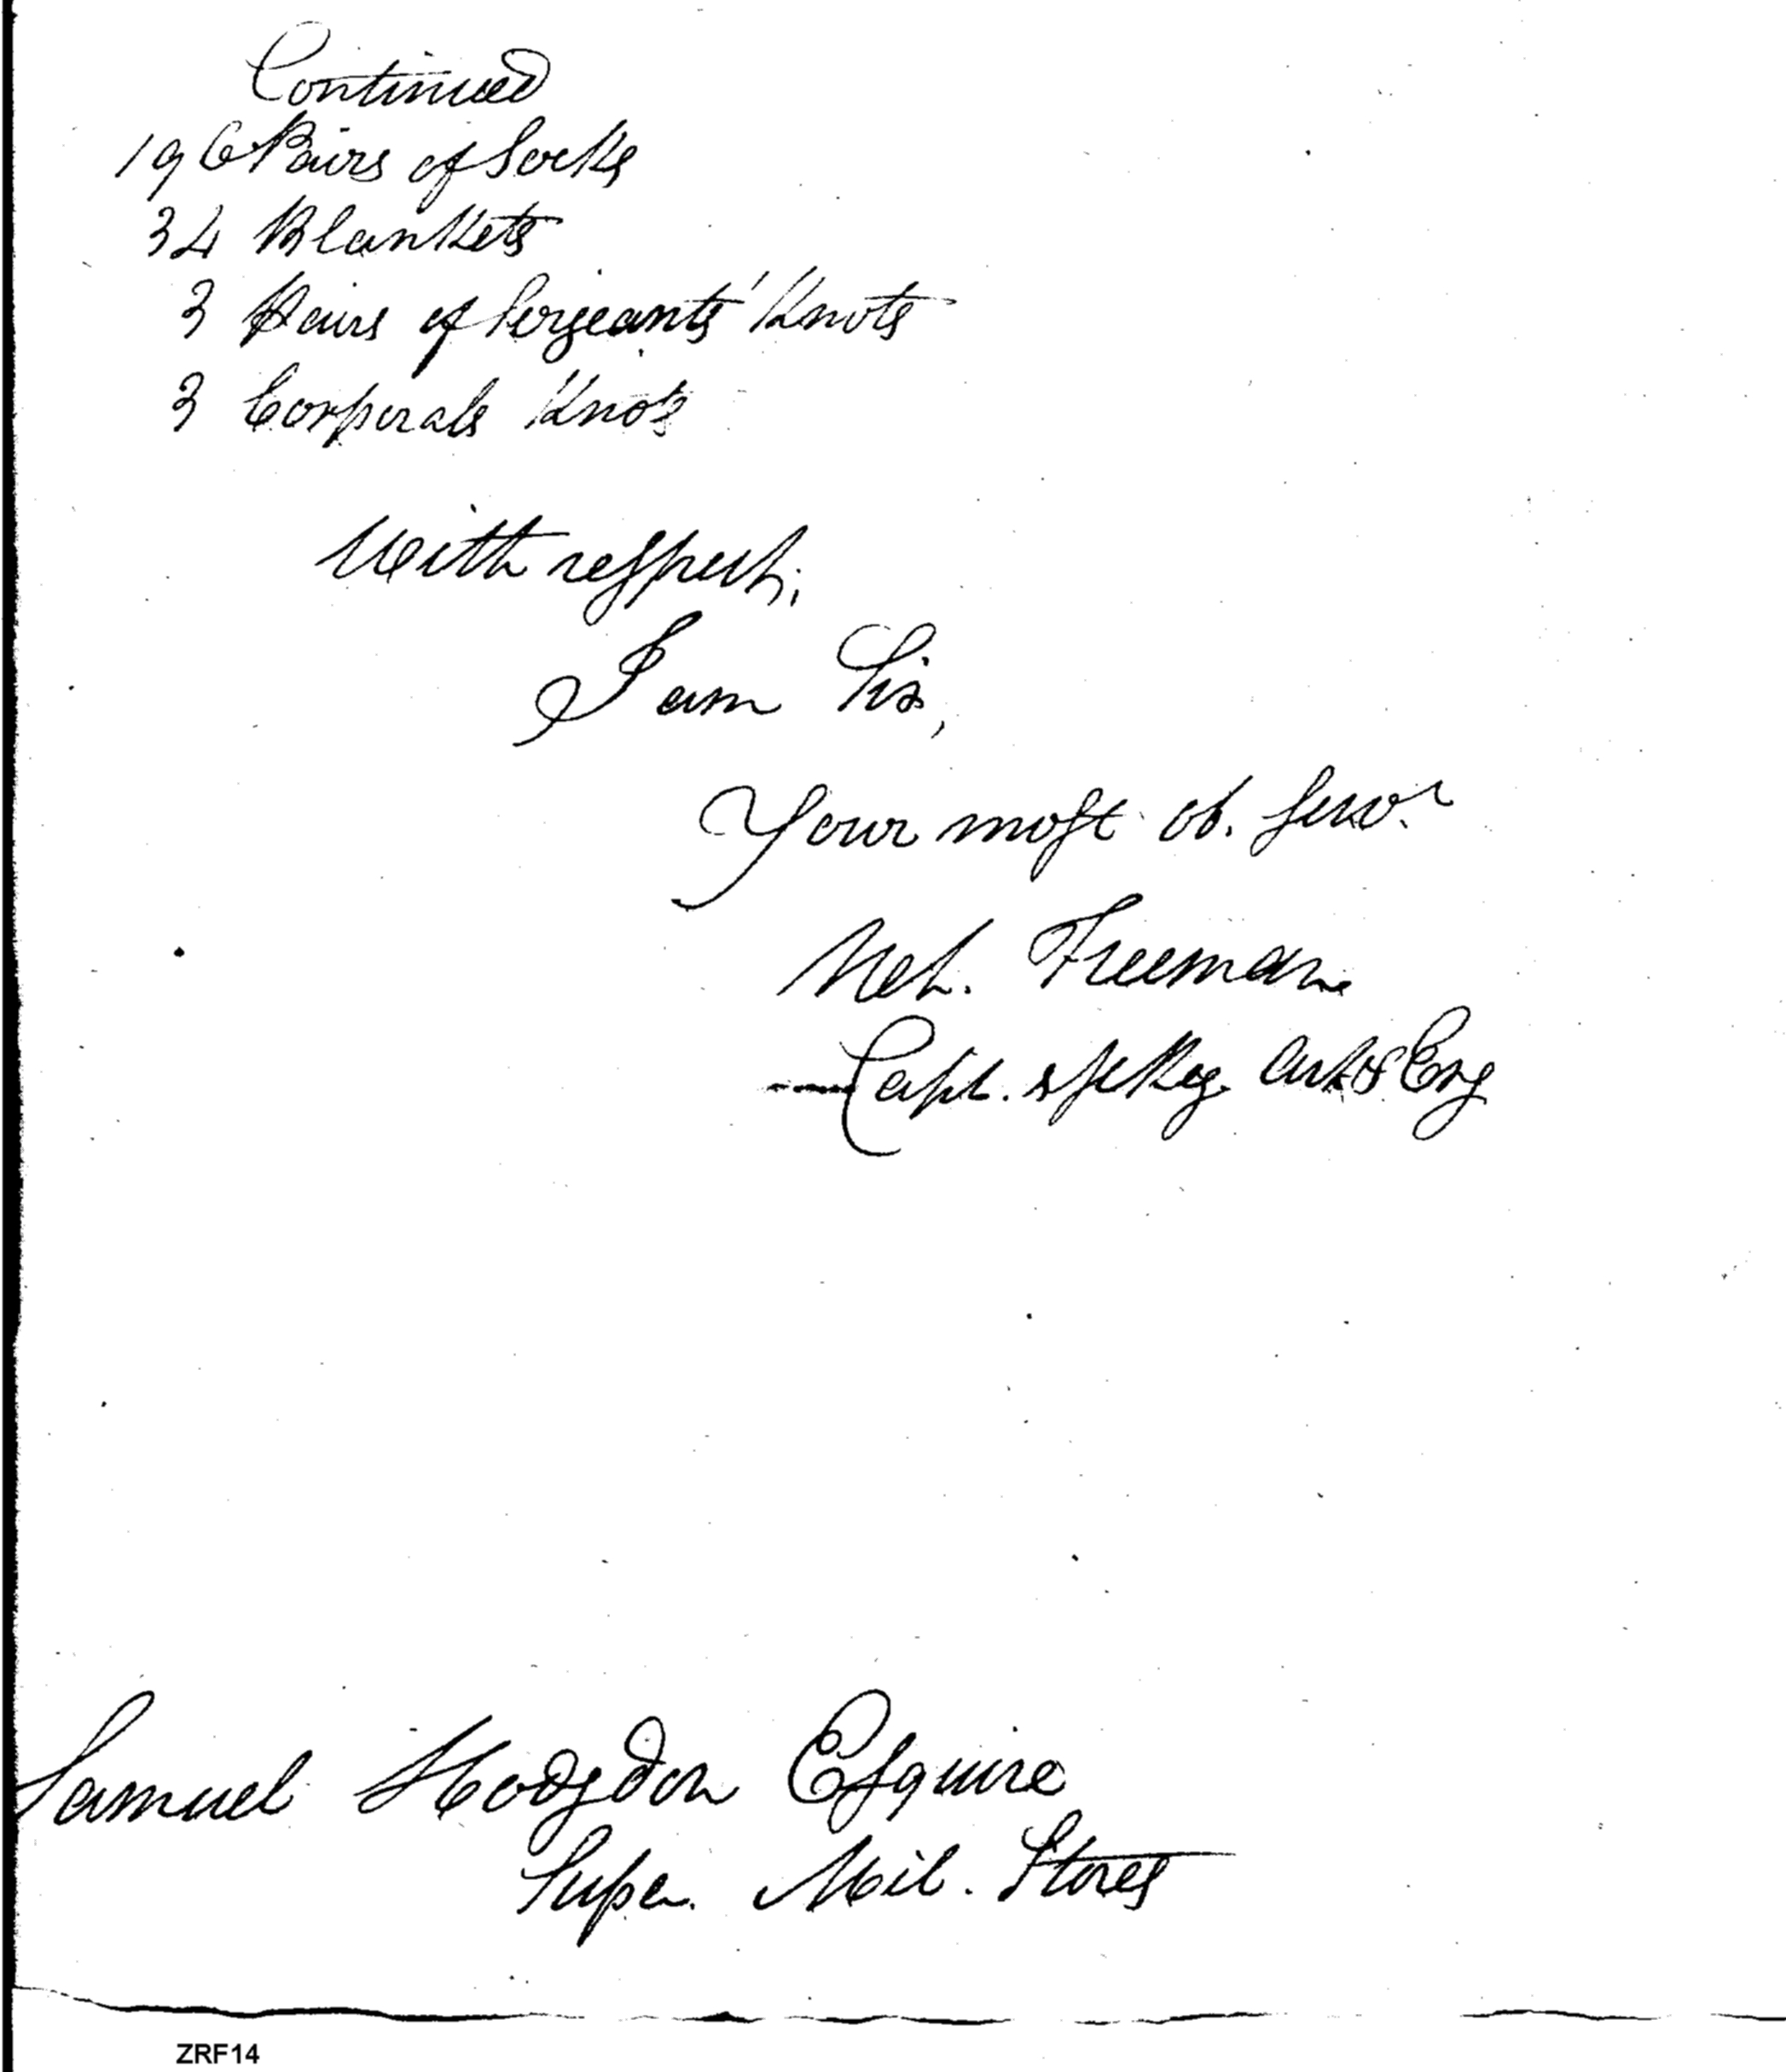 Continued
196 Pairs of Socks
34 Blankets
3 Pairs of Serjeants' Knots
3 Corporals Knots
With respect;
I am Sir,
Your most ob. Serv.
Neh. Freeman
Capt. 1st Reg. Art & Eng
Samuel Hodgdon Esquire
Super. Mil. Stores
ZRF14